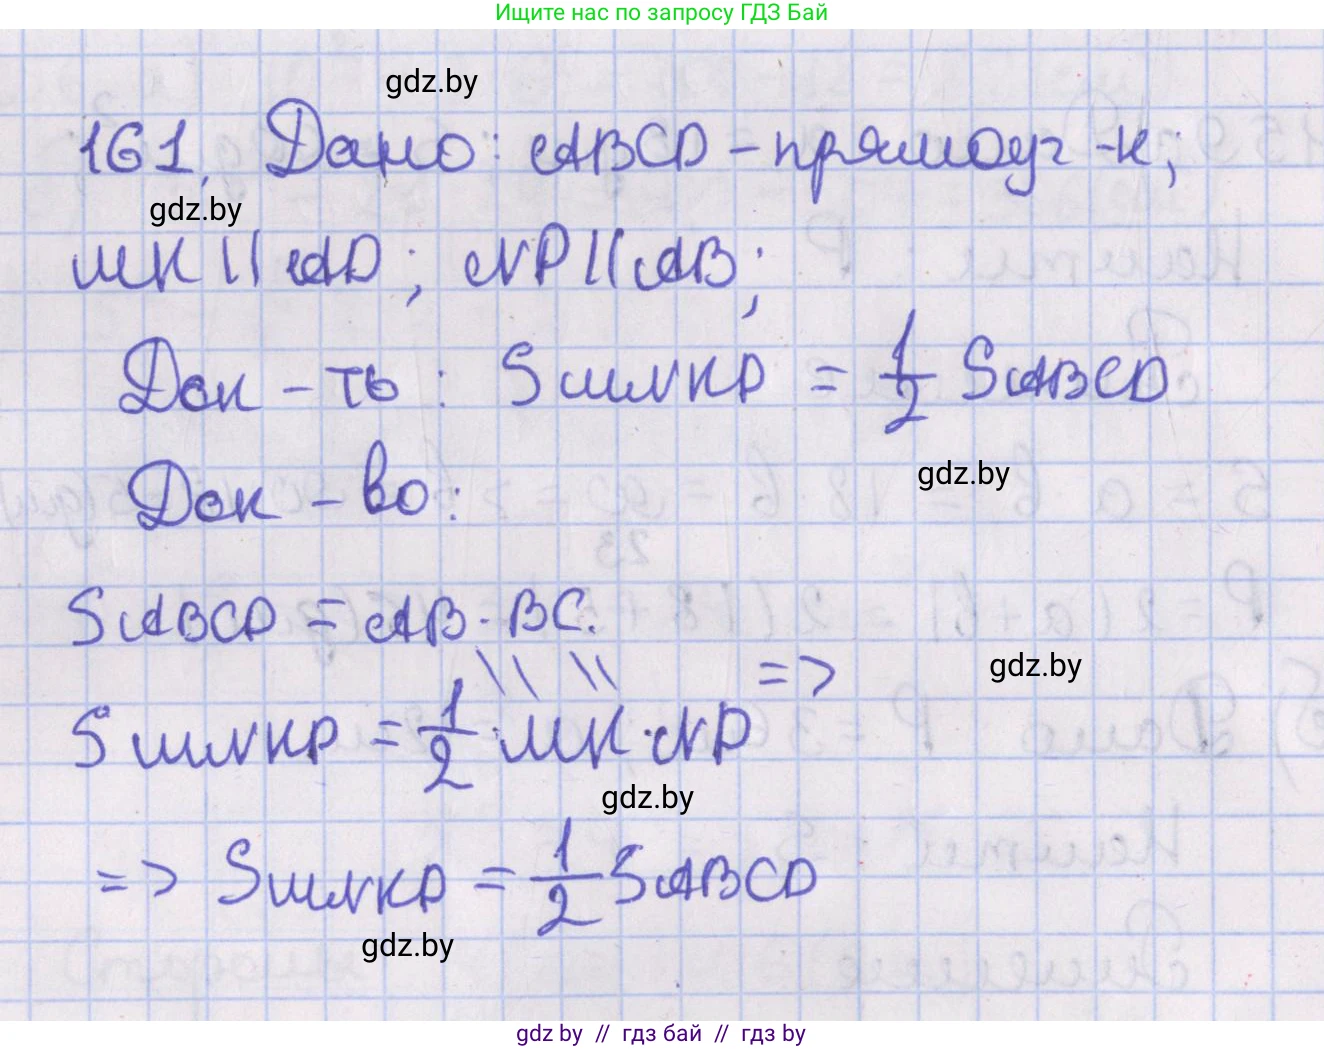 Ищите нас по запросу ГДЗ Бай
gdz.by
161. Дано: ABCD – прямоуг-к;
gdz.by
MK || AD; NP || AB;
Док – ть: SMNKP = 1/2 SABCD
gdz.by
Док – во:
SABCD = AB · BC.
=> gdz.by
SMNKP = 1/2 · MK · NP
gdz.by
=> SMNKP = 1/2 SABCD
gdz.by
gdz by // гдз бай // гдз by